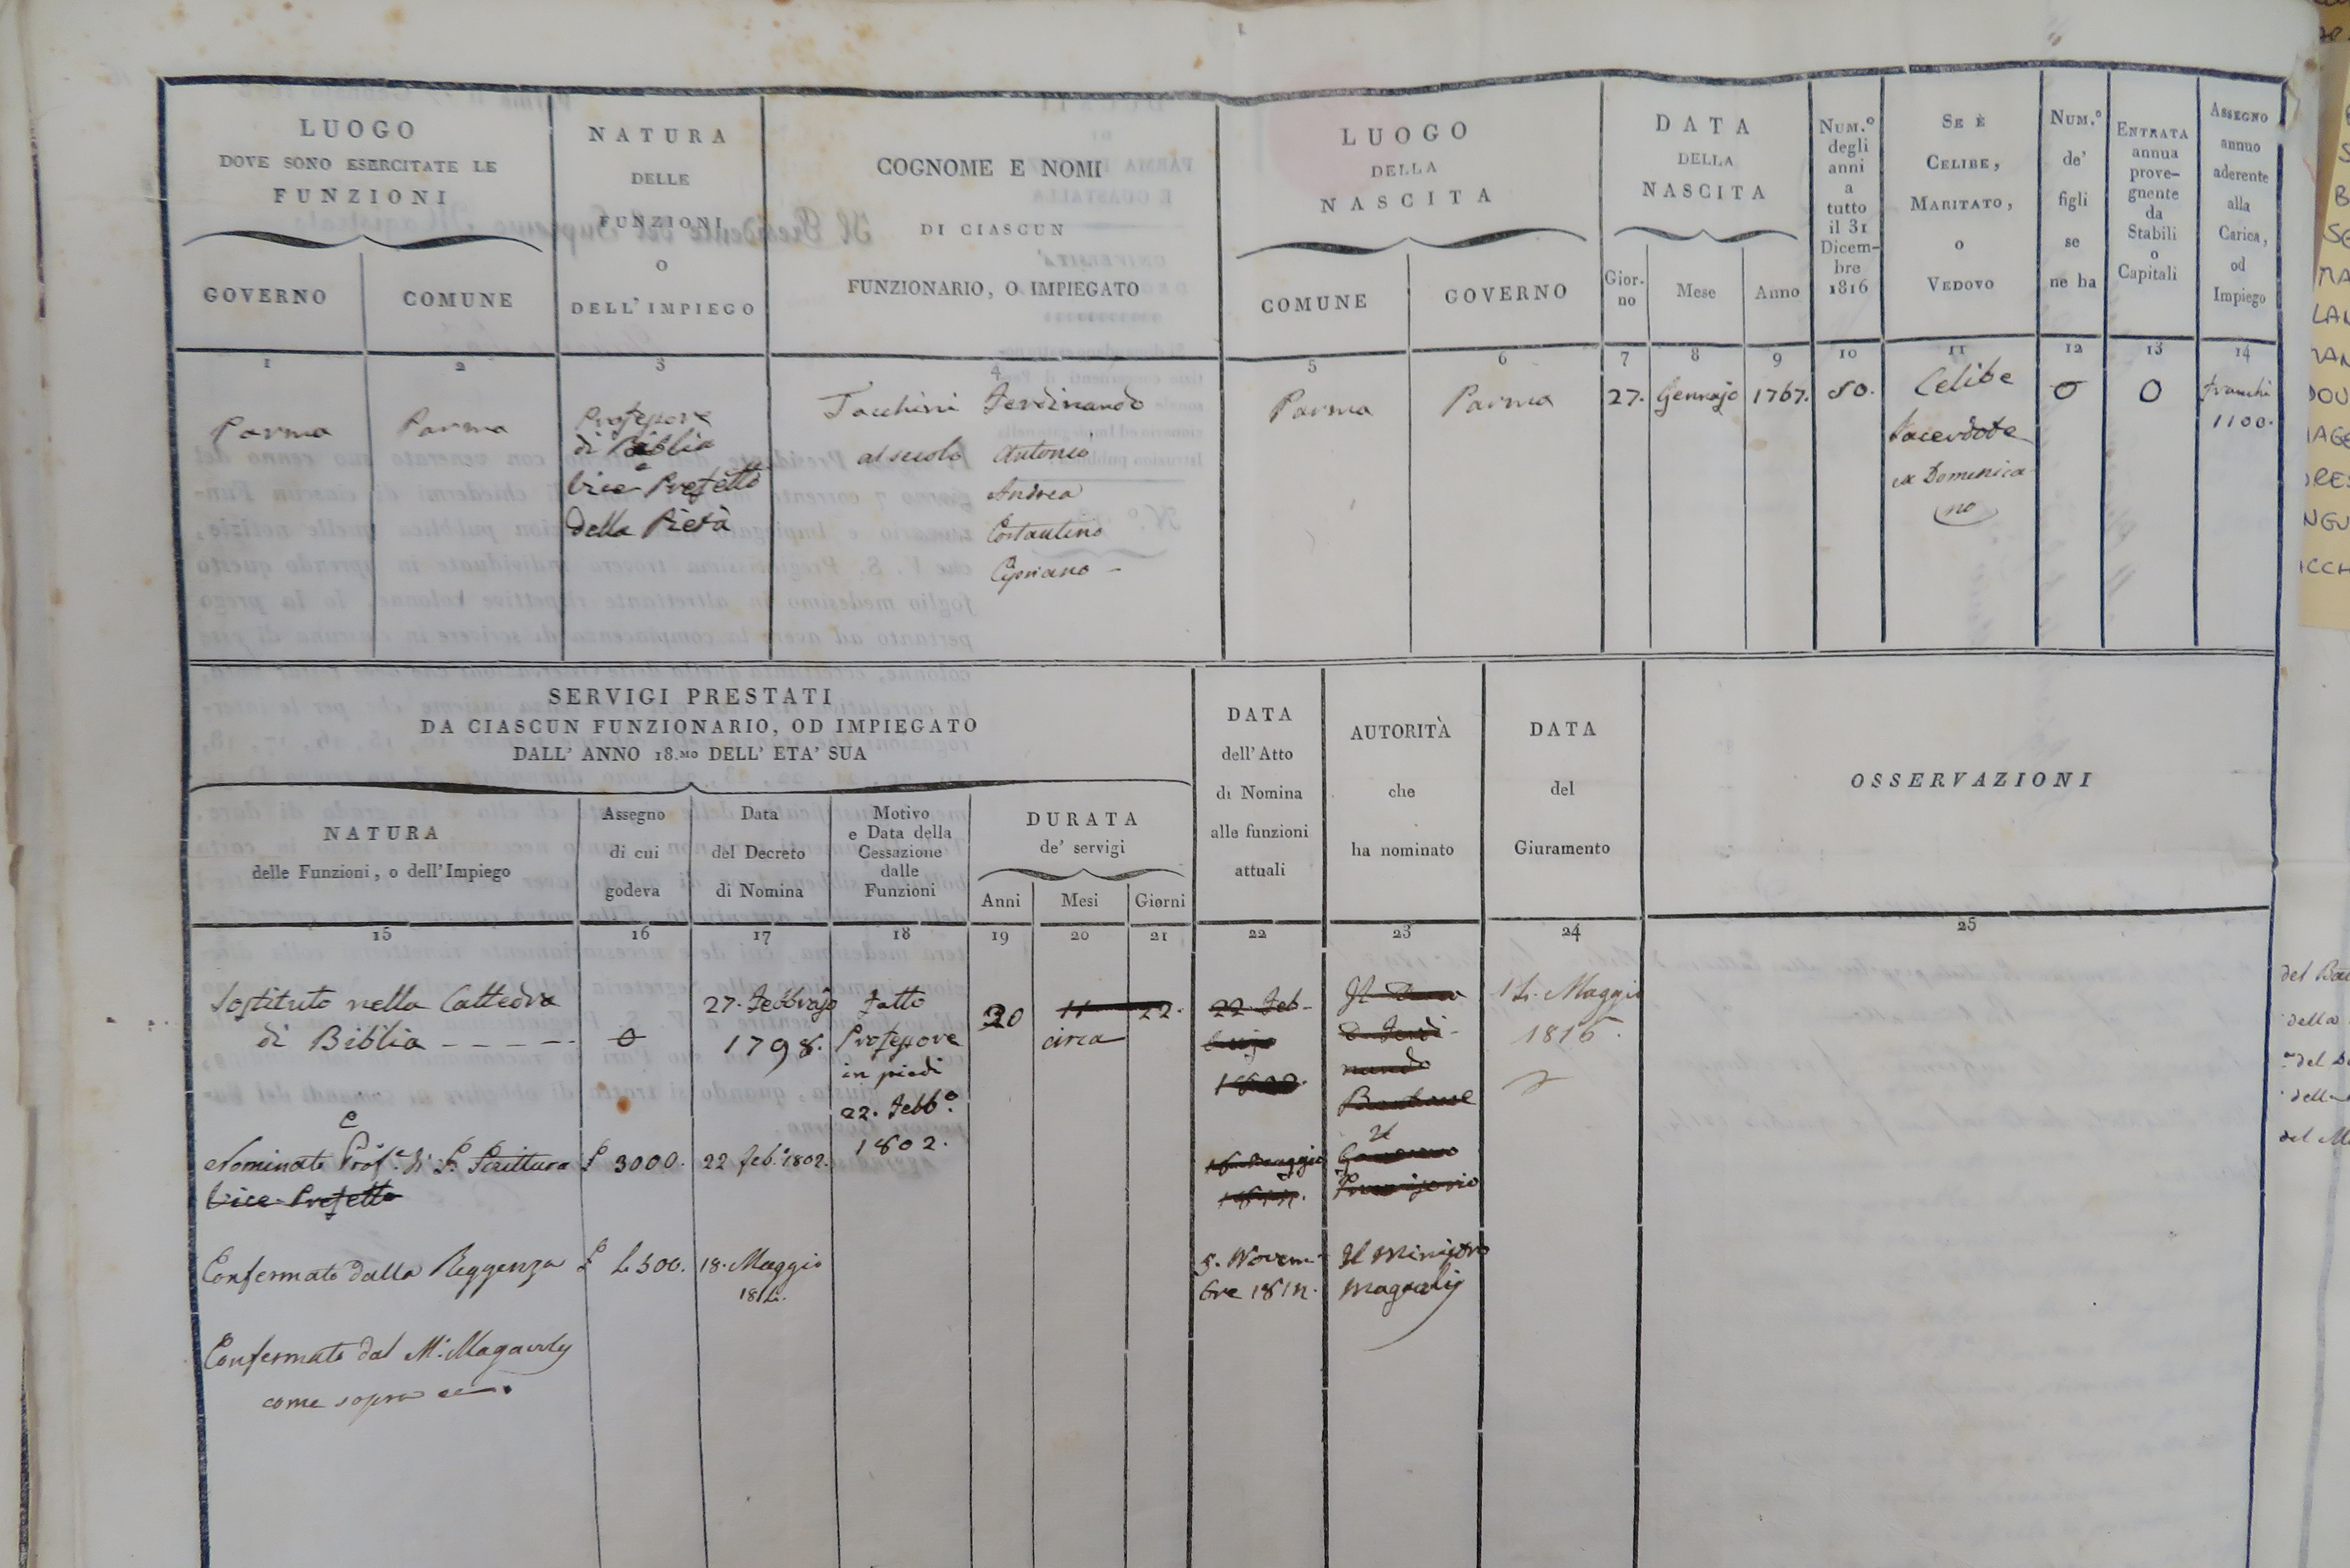 LUOGO
DOVE SONO ESERCITATE LE
FUNZIONI
GOVERNO
COMUNE
NATURA
DELLE
FUNZIONI
O
DELL'IMPIEGO
COGNOME E NOMI
DI CIASCUN
FUNZIONARIO, O IMPIEGATO
LUOGO
DELLA
NASCITA
COMUNE
GOVERNO
DATA
DELLA
NASCITA
Gior-
no
Mese
Anno
NUM.º
degli
anni
a
tutto
il 31
Dicem-
bre
1816
SE È
CELIBE,
MARITATO,
O
VEDOVO
NUM.º
de'
figli
se
ne ha
ENTRATA
annua
prove-
gnente
da
Stabili
o
Capitali
ASSEGNO
annuo
aderente
alla
Carica,
od
Impiego
1 2 3 4 5 6 7 8 9 10 11 12 13 14
Parma
Parma
Professore
di Biblia
e
Vice Prefetto
della Pietà
Tacchini Ferdinando
al secolo Antonio
Andrea
Costantino
Cipriano -
Parma
Parma
27.
Gennajo
1767.
50.
Celibe
Sacerdote
ex Domenica-
no
0
0
franchi
1100.
SERVIGI PRESTATI
DA CIASCUN FUNZIONARIO, OD IMPIEGATO
DALL' ANNO 18.MO DELL' ETA' SUA
NATURA
delle Funzioni, o dell'Impiego
Assegno
di cui
godeva
Data
del Decreto
di Nomina
Motivo
e Data della
Cessazione
dalle
Funzioni
DURATA
de' servigi
Anni
Mesi
Giorni
DATA
dell'Atto
di Nomina
alle funzioni
attuali
AUTORITÀ
che
ha nominato
DATA
del
Giuramento
OSSERVAZIONI
15 16 17 18 19 20 21 22 23 24 25
Sostituto nella Cattedra
di Biblia - - - - -
0
27. Febbrajo
1798.
Fatto
Professore
in piedi
22. Febb.º
1802.
20
circa
22.
22 Feb-
14. Maggio
1816.
e
Nominato Prof.e di S. Scrittura
£ 3000.
22 feb.º 1802.
Vice-Prefetto
Il
Confermato dalla Reggenza
18. Maggio
1814.
5. Novem-
bre 1814.
Il Ministro
Magawly
Confermato dal M.º Magawly
come sopra